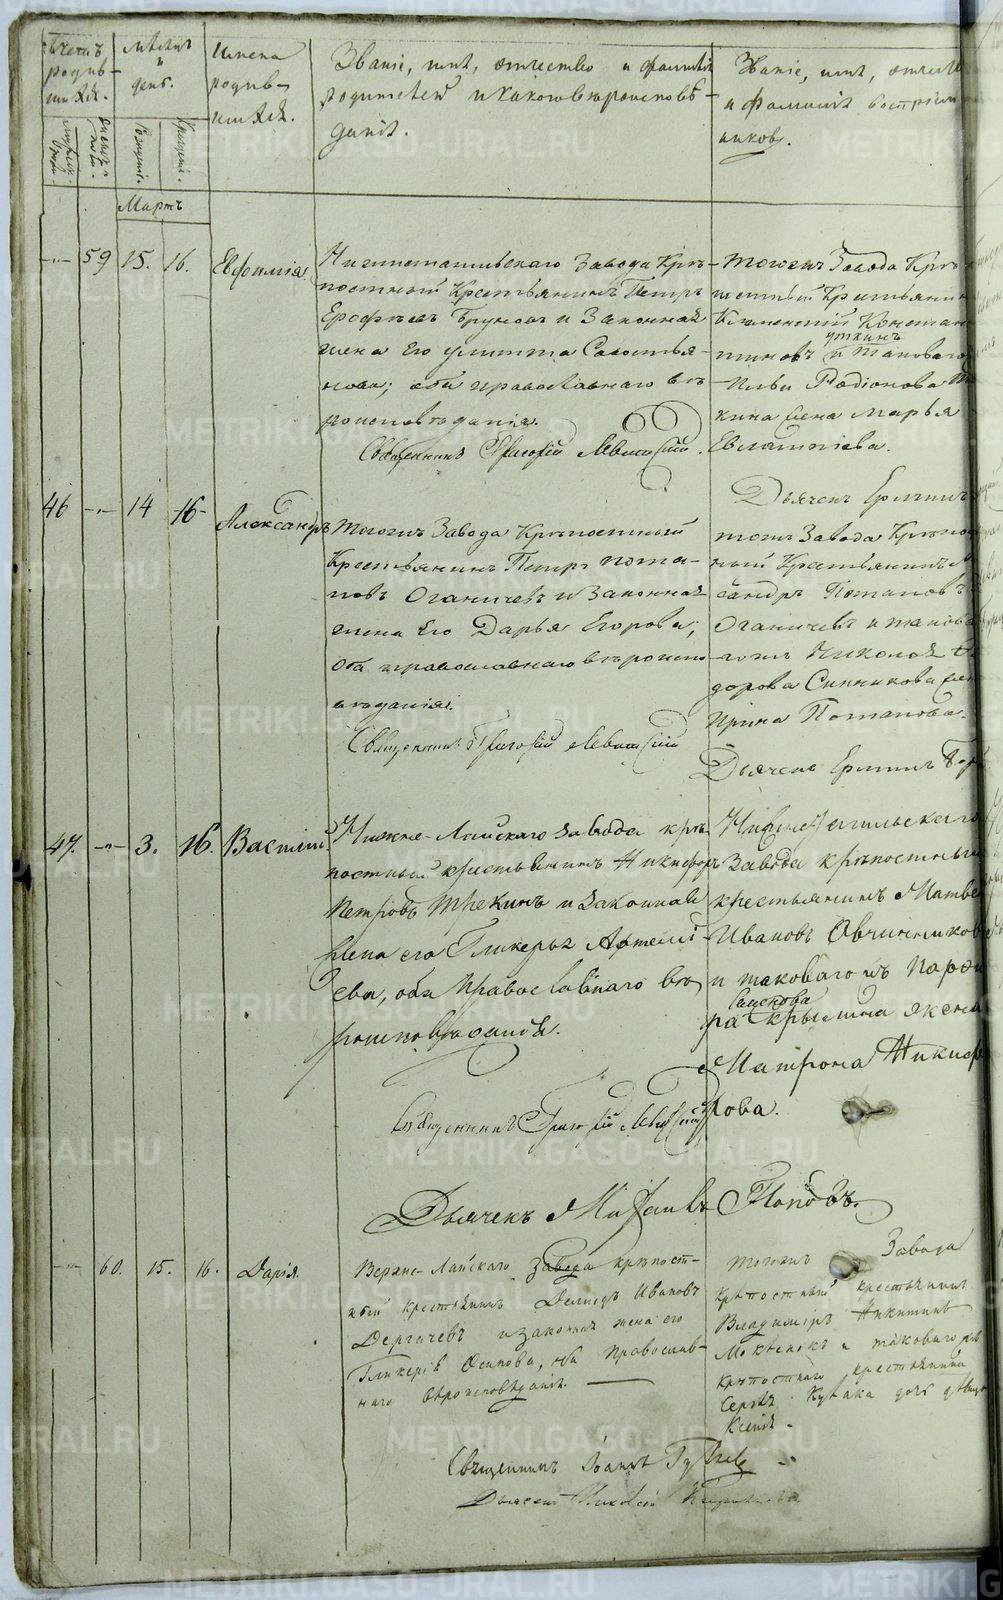 Счетъ родив-шихся.
Мѣсяцъ и день.
Имена родив-шихся.
Званіе, имя, отчество и фамилія
родителей и какого вѣроисповѣ-
данія.
Званіе, имя, отчест
и фамилія воспріем
никовъ.
Рожденія.
Крещенія.
Мартъ
59 15. 16. Евфимія
Нижнетагильскаго Завода Крѣ-
постный Крестьянинъ Петръ
Ерофѣевъ и Законная
жена Его Улитта Савостья-
нова; оба православнаго вѣ-
роисповѣданія.
Священникъ Григорій Левитскій.
Тогожъ Завода Крѣ
постный Крестьянин
Климентій Констан
тиновъ Уткинъ и таковаго
Ильи Родіонова
кина жена Марья
Евлампіева.
Дьячекъ Ермилъ
46 14 16 Александръ
Тогожъ Завода Крѣпостный
Крестьянинъ Петръ Пота-
повъ Оганичевъ и Законная
жена Его Дарья Егорова;
Оба православнаго вѣроиспо-
вѣданія.
Священникъ Григорій Левитскій
тогожъ Завода Крѣпос
ный Крестьянинъ
сандръ Потаповъ
Оганичевъ и такова
гожъ Николая
дорова Синникова жен
Ирина Потапова.
Дьячекъ Ермилъ
47. 3. 16. Василій
Нижне-Лайскаго завода крѣ-
постный крестьянинъ Никифоръ
Петровъ Трекинъ и законная
жена его Гликерья Артемі-
ева, оба Православнаго вѣ-
роисповѣданія.
Священникъ Григорій Левитскій
Нижнетагильскаго
Завода крѣпостный
крестьянинъ Матве
Ивановъ Овчинников
и таковагожъ
ра Семенова жена
Матрона Никиф
рова.
Дьячекъ Михаилъ Поповъ.
60. 15. 16. Дарія.
Верхне-Лайскаго Завода крѣпост-
ный крестьянинъ Демидъ Ивановъ
Дергачевъ и законная жена его
Гликерія Осипова, оба Православ-
наго вѣроисповѣданія.
тогожъ Завода
крѣпостный крестьянинъ
Владиміръ Никитинъ
и таковагожъ
крѣпостнаго крестьянина
Сергѣя дочь дѣвица
Ксенія
Священникъ Іоаннъ
Дьячекъ Николай
METRIKI.GASO-URAL.RU